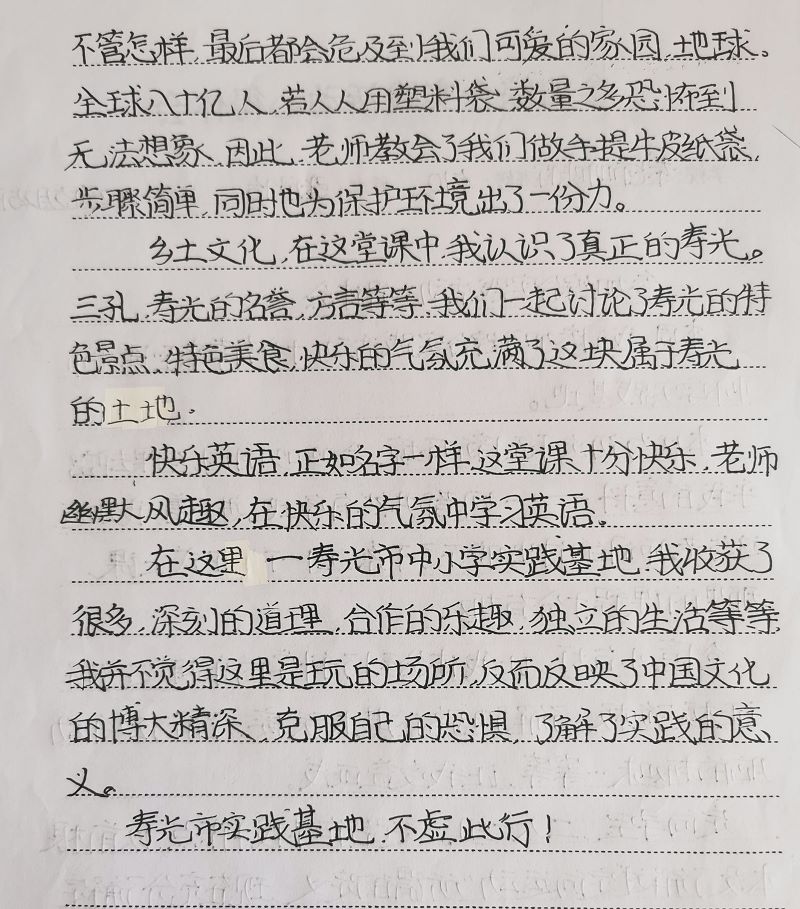 不管怎样,最后都会危及到我们可爱的家园,地球。
全球八十亿人,若人人用塑料袋,数量之多恐怖到
无法想象,因此,老师教会了我们做手提牛皮纸袋,
步骤简单,同时也为保护环境出了一份力。
乡土文化,在这堂课中,我认识了真正的寿光。
三孔,寿光的名誉,方言等等,我们一起讨论了寿光的特
色景点,特色美食,快乐的气氛充满了这块属于寿光
的土地.
快乐英语,正如名字一样,这堂课十分快乐,老师
幽默风趣,在快乐的气氛中学习英语.
在这里一寿光市中小学实践基地,我收获了
很多,深刻的道理,合作的乐趣,独立的生活等等,
我并不觉得这里是玩的场所,反而反映了中国文化
的博大精深,克服自己的恐惧,了解了实践的意
义。
寿光市实践基地,不虚此行!